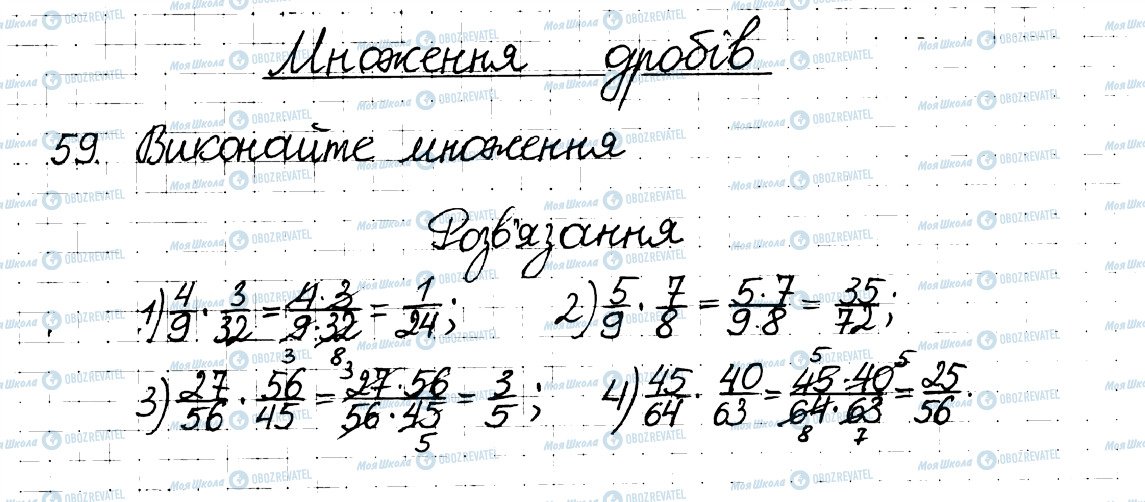 Множення дробів
59. Виконайте множення
Розв'язання
1) 4/9 · 3/32 = 4·3/9·32 = 1/24; 2) 5/9 · 7/8 = 5·7/9·8 = 35/72;
3 8 5 5
3) 27/56 · 56/45 = 27·56/56·45 = 3/5; 4) 45/64 · 40/63 = 45·40/64·63 = 25/56.
3 5 8 7
Моя Школа OBOZREVATEL